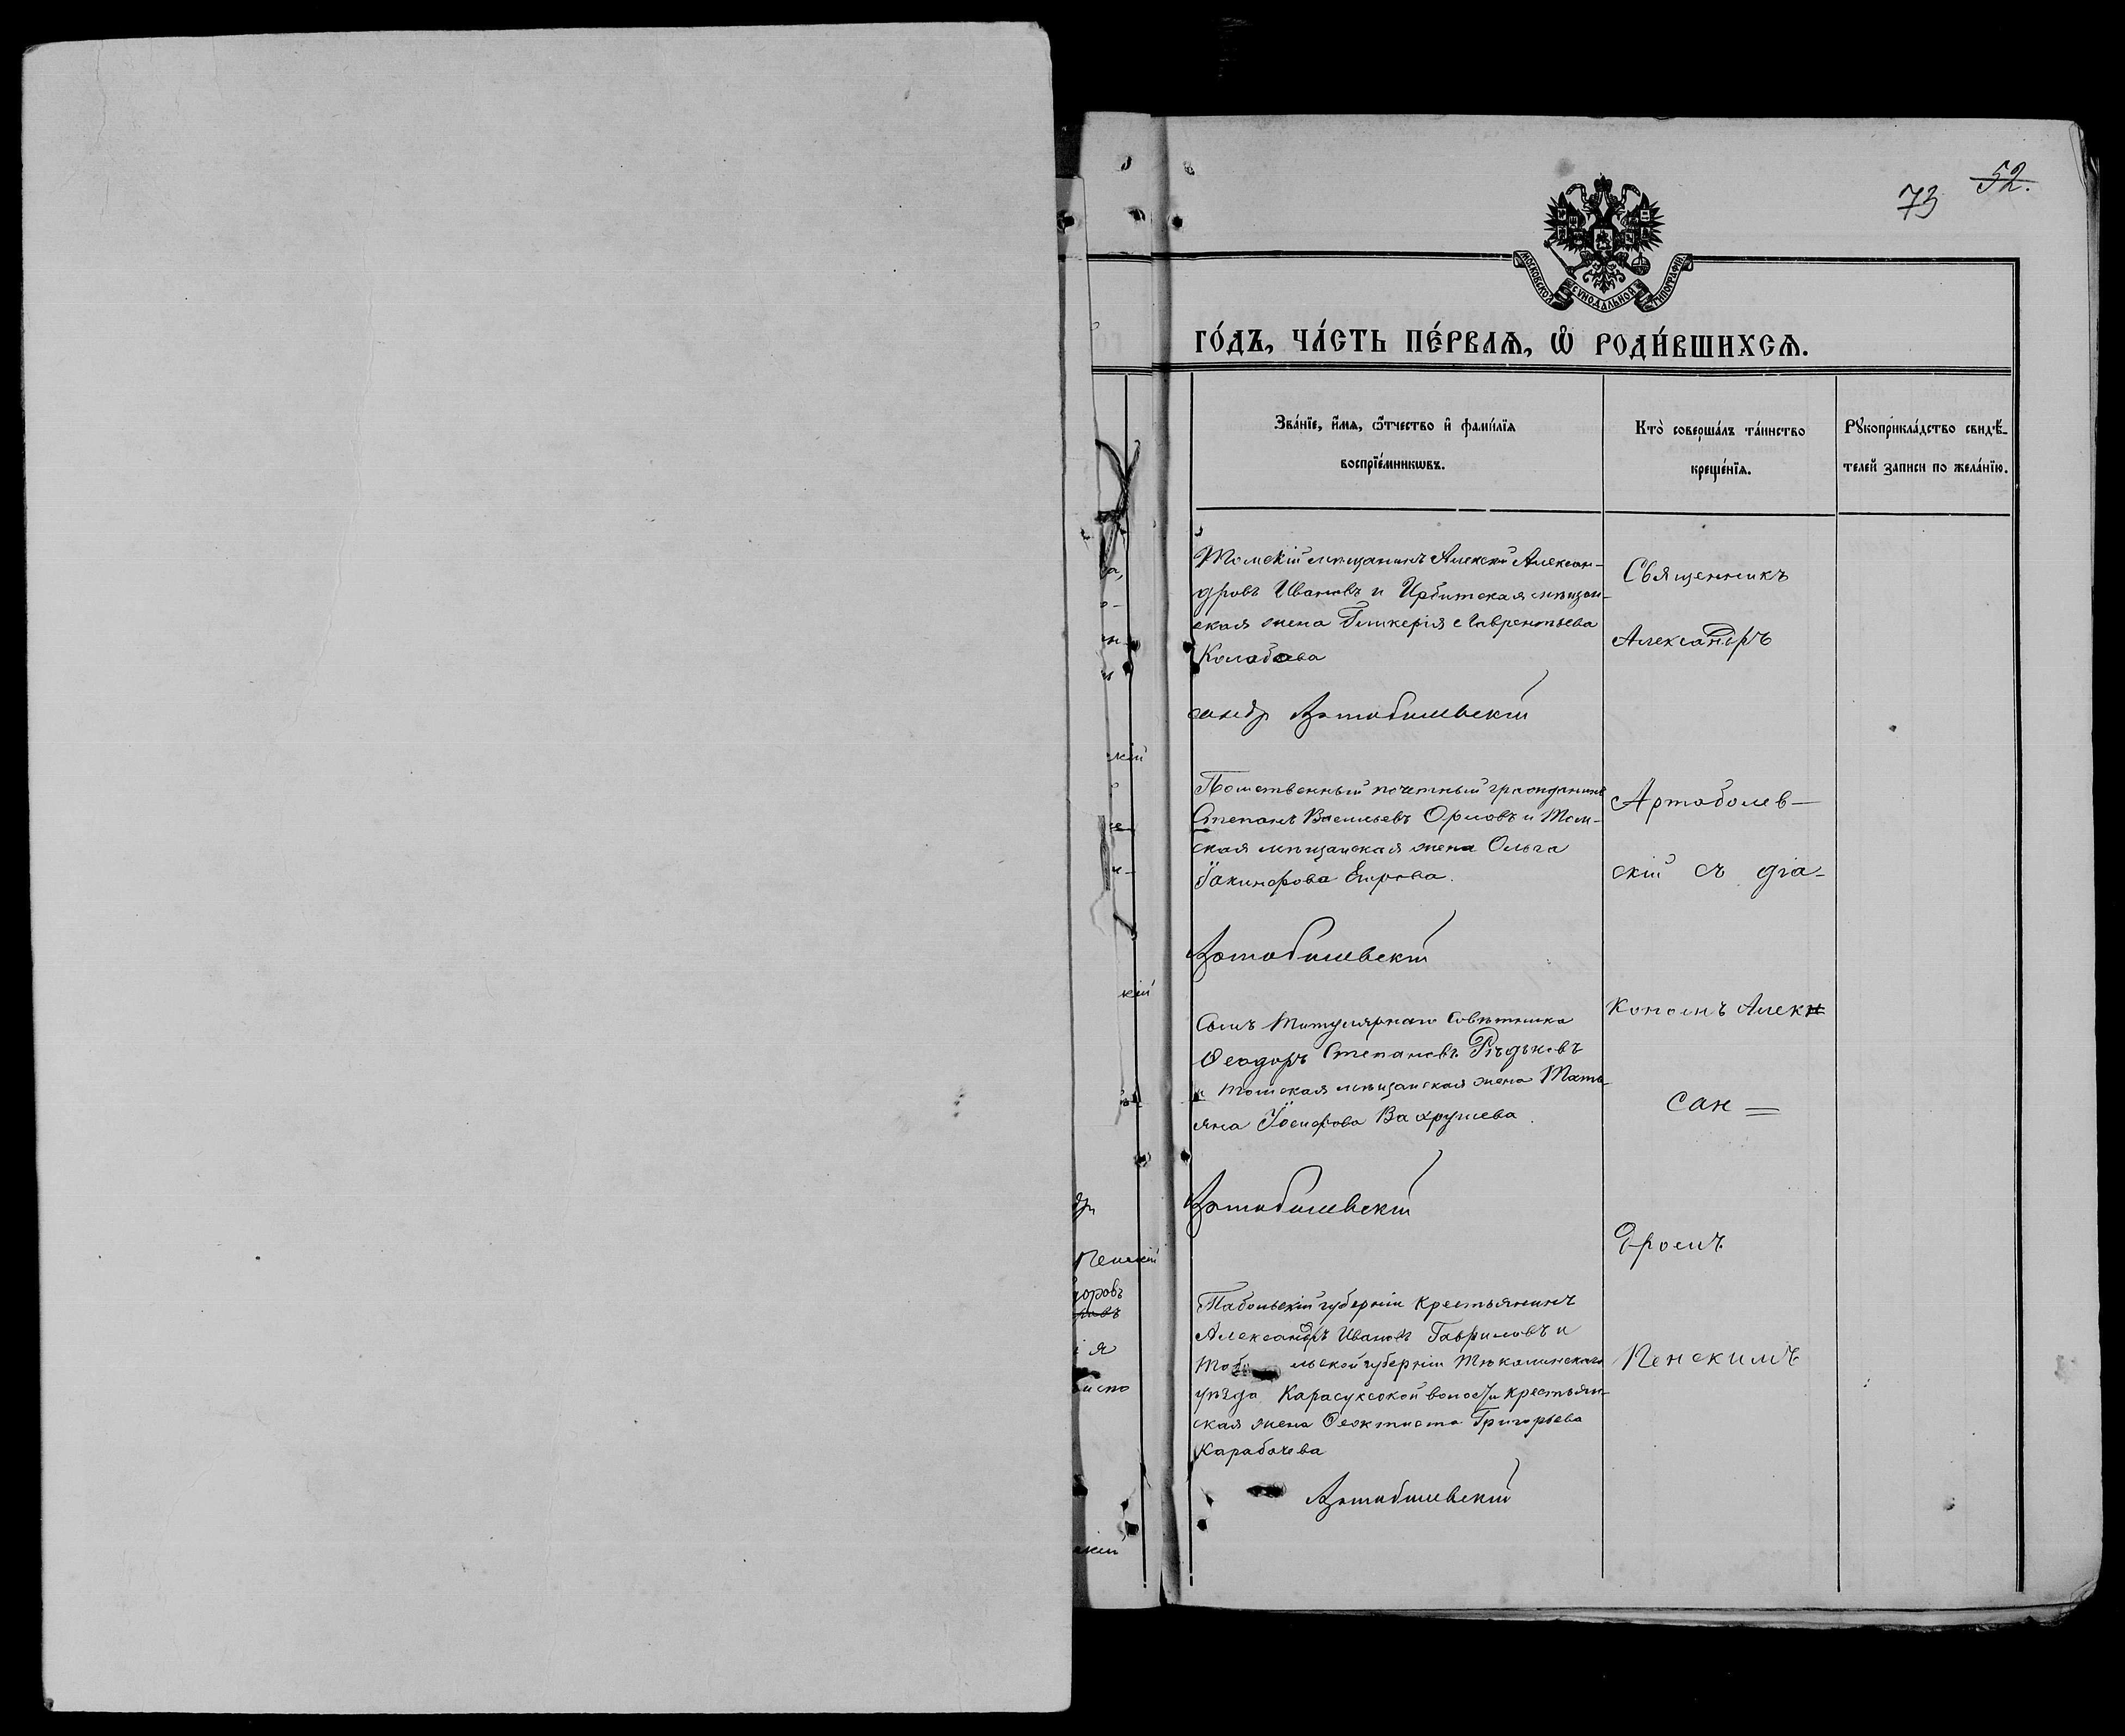 73 52.
МОСКОВСКОЙ СѴНОДАЛЬНОЙ ТИПОГРАФІИ
ГО́ДЪ, ЧА́СТЬ ПЕ́РВАѦ, Ѡ҆ РОДИ́ВШИХСѦ.
Зва́нїе, и҆́мѧ, ѻ҆́тчество и҆ фами́лїѧ
воспрїе́мникѡвъ.
Кто̀ соверша́лъ та́инство
креще́нїѧ.
Рꙋкоприкла́дство свидѣ́-
телей записи по жела́нїю.
Томскій мѣщанинъ Алексѣй Алексан-
дровъ Ивановъ и Ирбитская мѣщан-
ская жена Гликерія Лаврентьева
сандр Артоболевскій
Потомственный почетный гражданинъ
Степанъ Васильевъ Орловъ и Том-
ская мѣщанская жена Ольга
Іакинфова
Артоболевскій
Сынъ Титулярнаго Совѣтника
Ѳеодоръ Степановъ Рѣдьковъ
и Томская мѣщанская жена Татьяна
Іосифова Вахрушева.
Артоболевскій
Тобольскій губерніи крестьянинъ
Александръ Ивановъ Гавриловъ и
Тобольской губерніи Тюкалинскаго
уѣзда Карасукской волости крестьян-
ская жена Ѳеоктиста Григорьева
Карабачева
Артоболевскій
Священникъ
Александръ
Артоболев-
скій съ діа-
кономъ Алек
сан=
дромъ
Пенскимъ